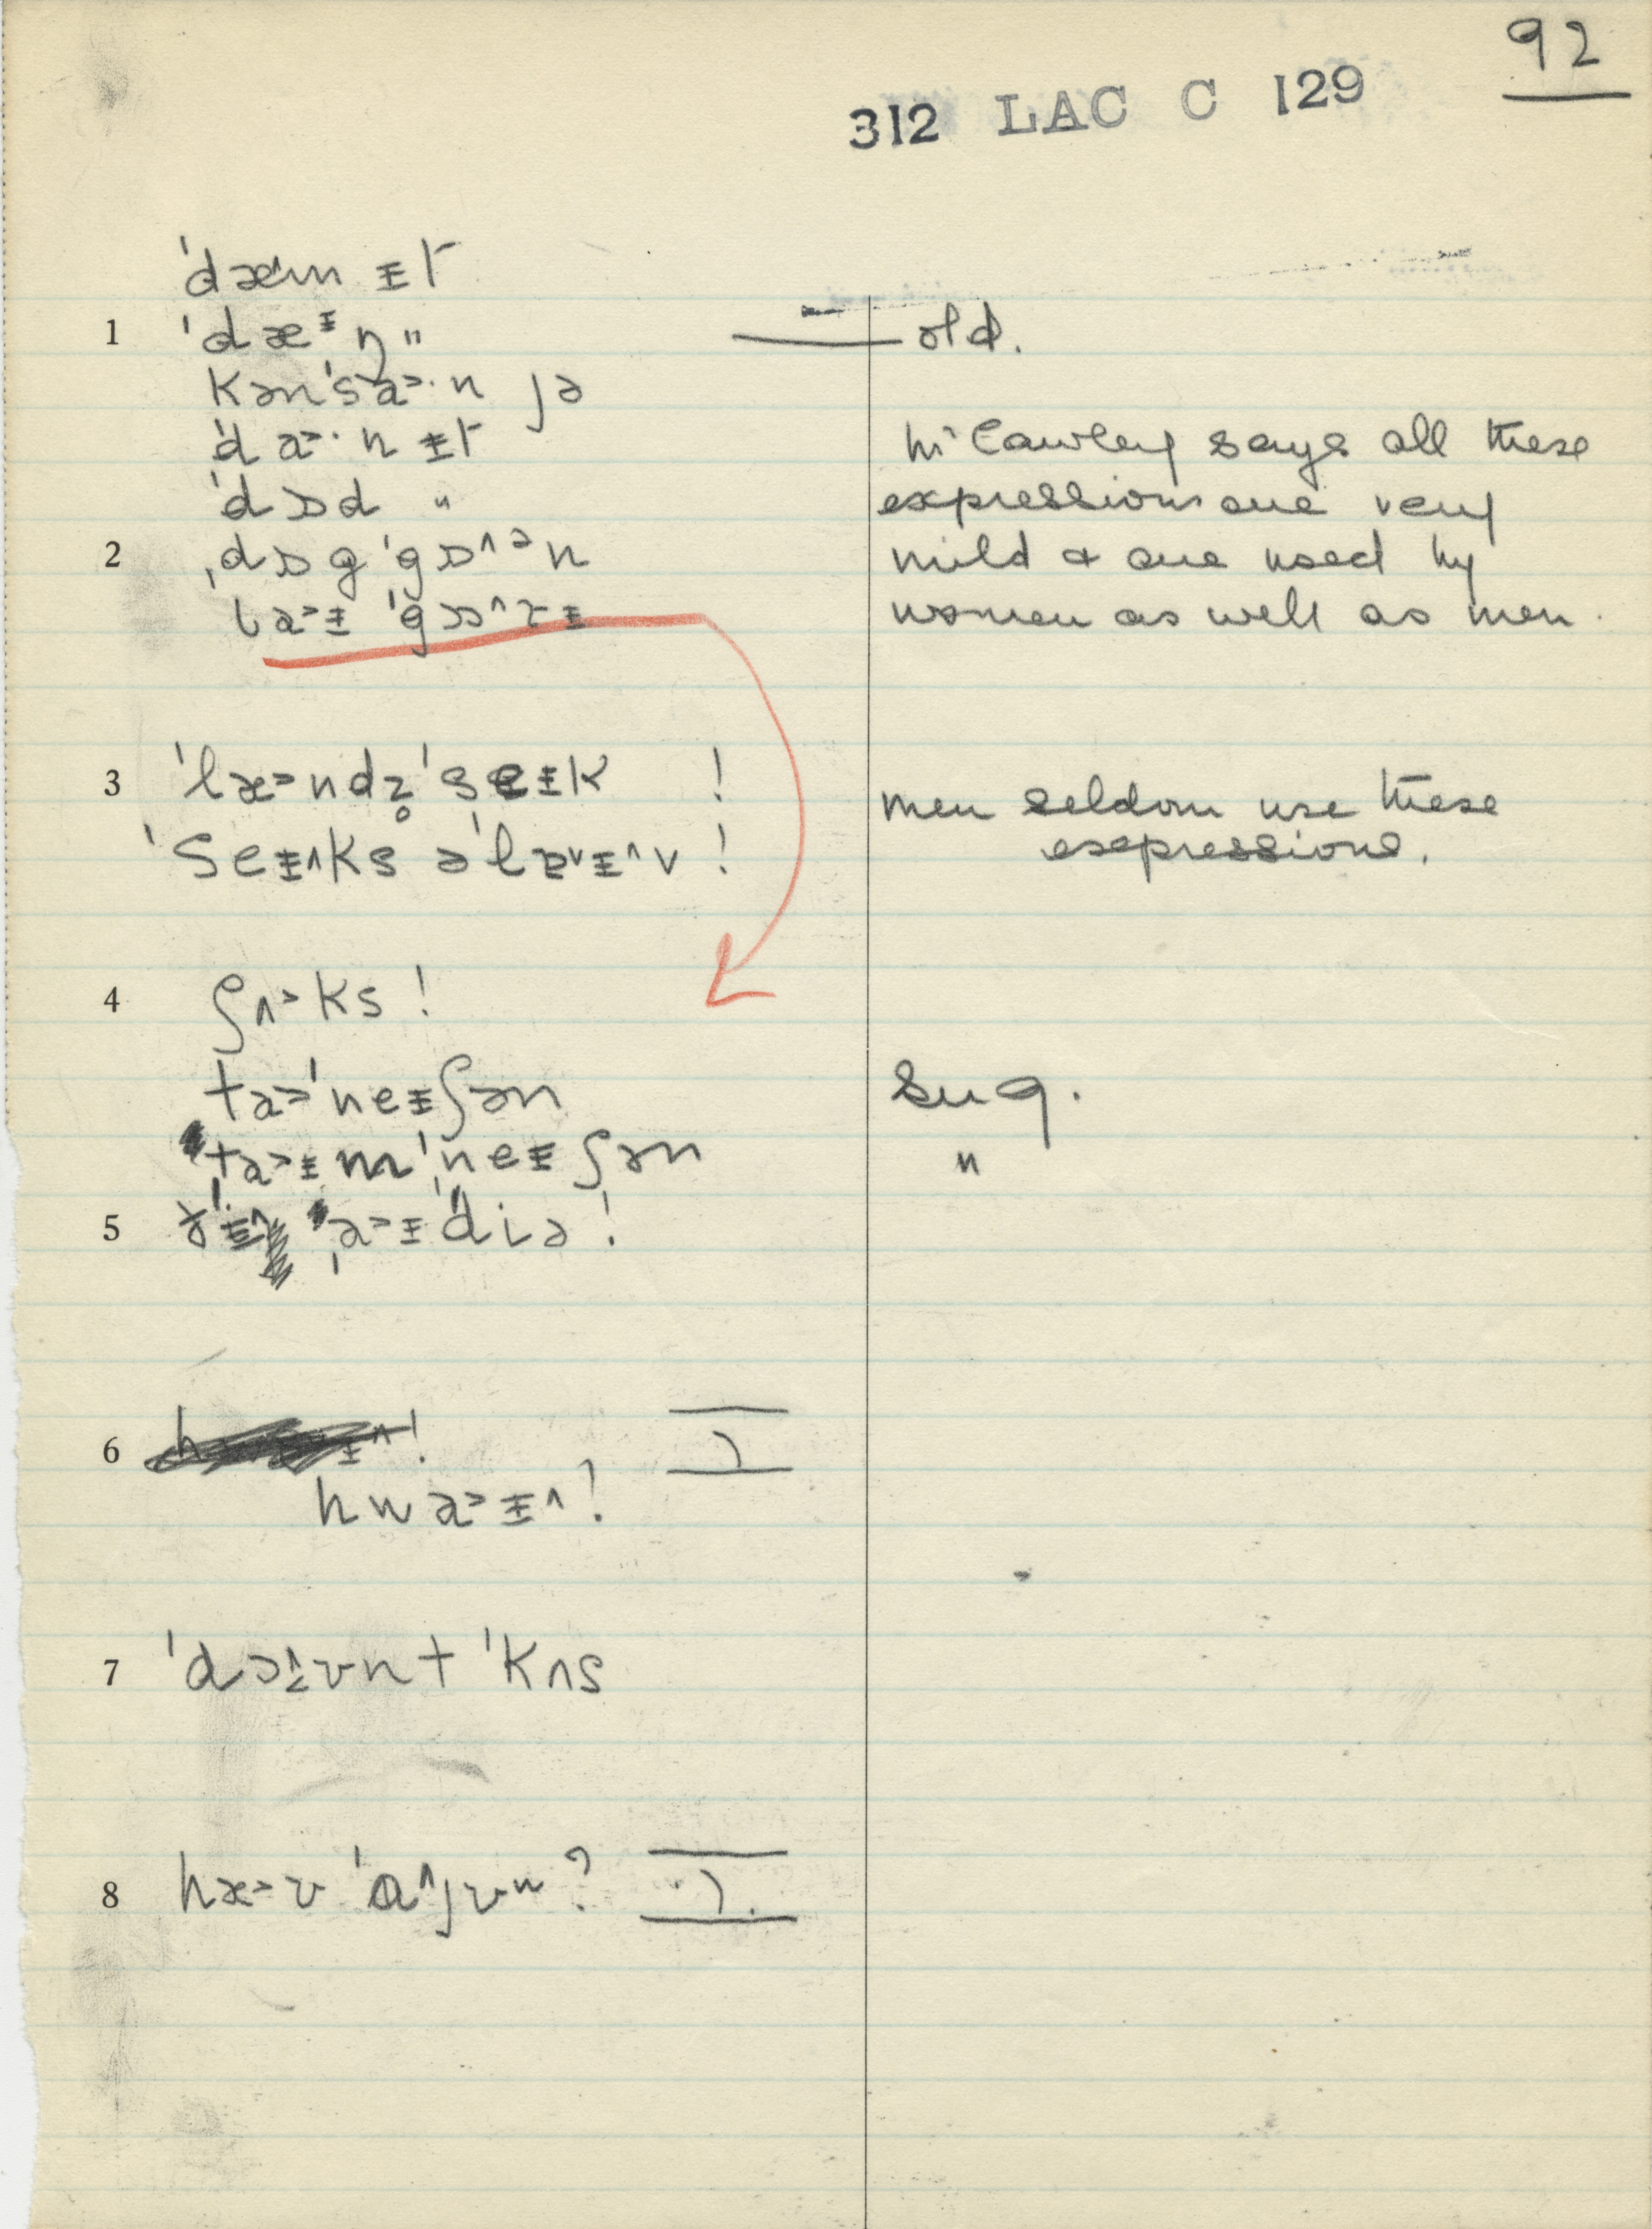 92
312 LAC C 129
ˈdæ˄m ɪ̵t
1 ˈdæᵻŋ " — old.
kənˈsa˃·n jə
ˈda˃·n ᵻt
ˈdɒd "
2 ˌdɒgˈgɒ˄ᵊn
ba˃ᵻ ˈgɒ˄
Mᶜ Cawley says all these
expressions are very
mild & are used by
women as well as men.
3 ˈlæ˃ndz̥ ˈseᵻk !
ˈseᵻ˄ks əˈl !
men seldom use these
expressions.
4 ʃʌ˃ks !
ta˃ˈneᵻʃən sug.
ta˃ᵻmˈneᵻʃən "
5 a˃ᵻˈdiə !
6 hwa˃ᵻ˄ !
7 ˈdɔ nt ˈkʌs
8 hæ˃ʊ ˈɑ˄jʊʷ ?